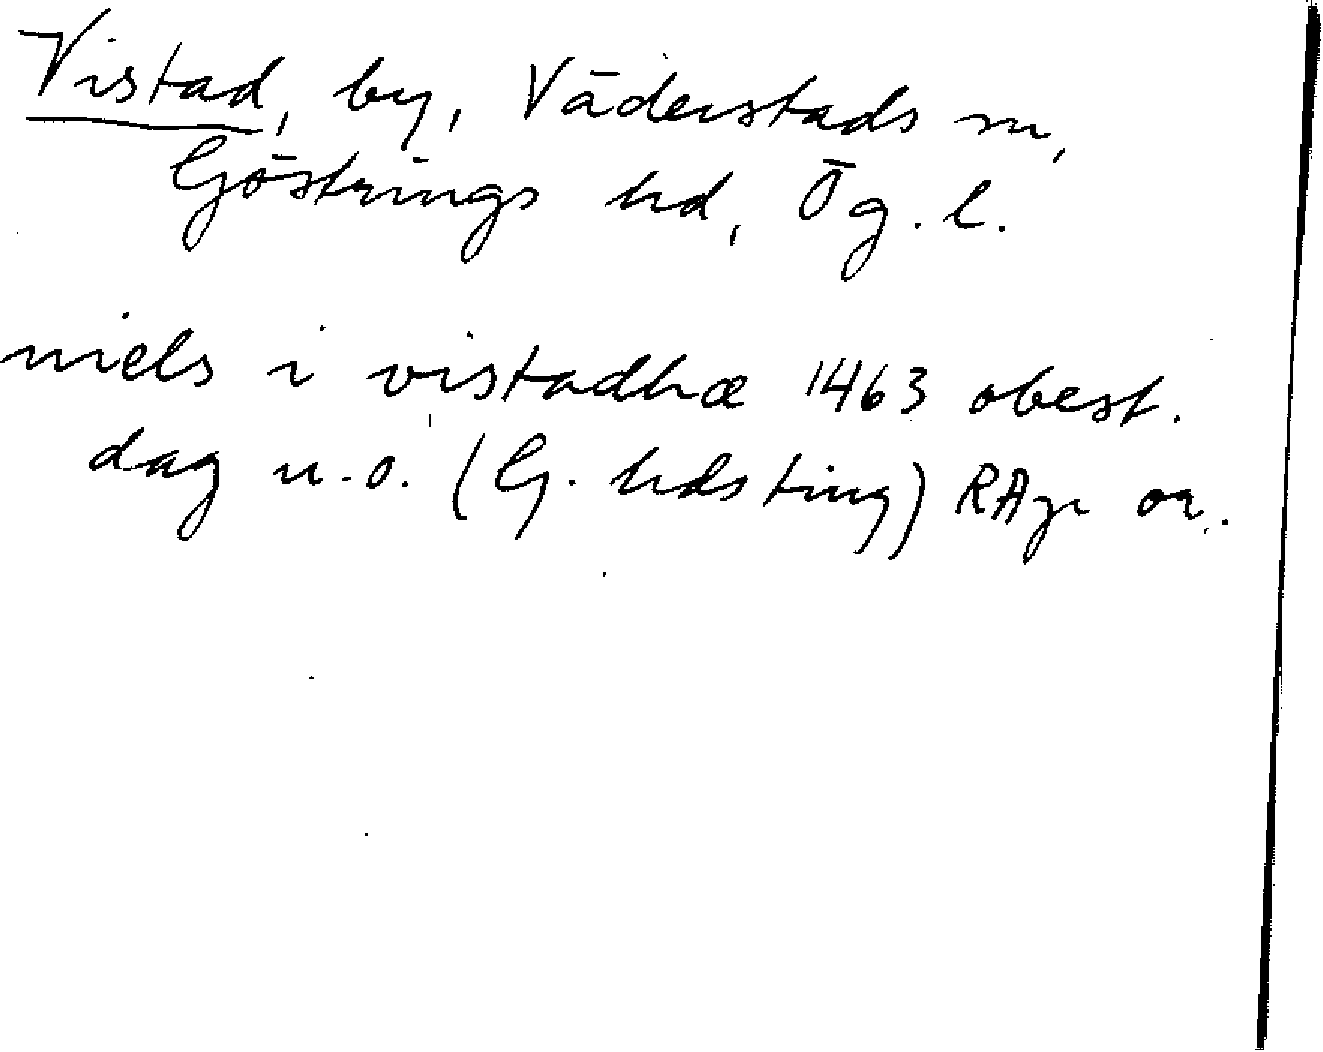 Vistad, by, Väderstads sn,
Göstrings hd, Ög. l.
niels i vistadhæ 1463 obest.
dag u.o. (G. hds ting) RAp or.